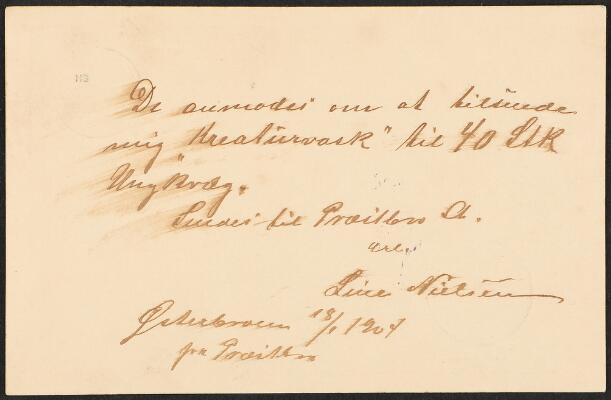 De anmodes om at tilsende
mig "Kreaturvask" til 40 Stk
Ungkvæg.
Sendes til Præstbro St.
ærb.
Line Nielsen
Østerbroen 18/1 1904
pr. Præstbro